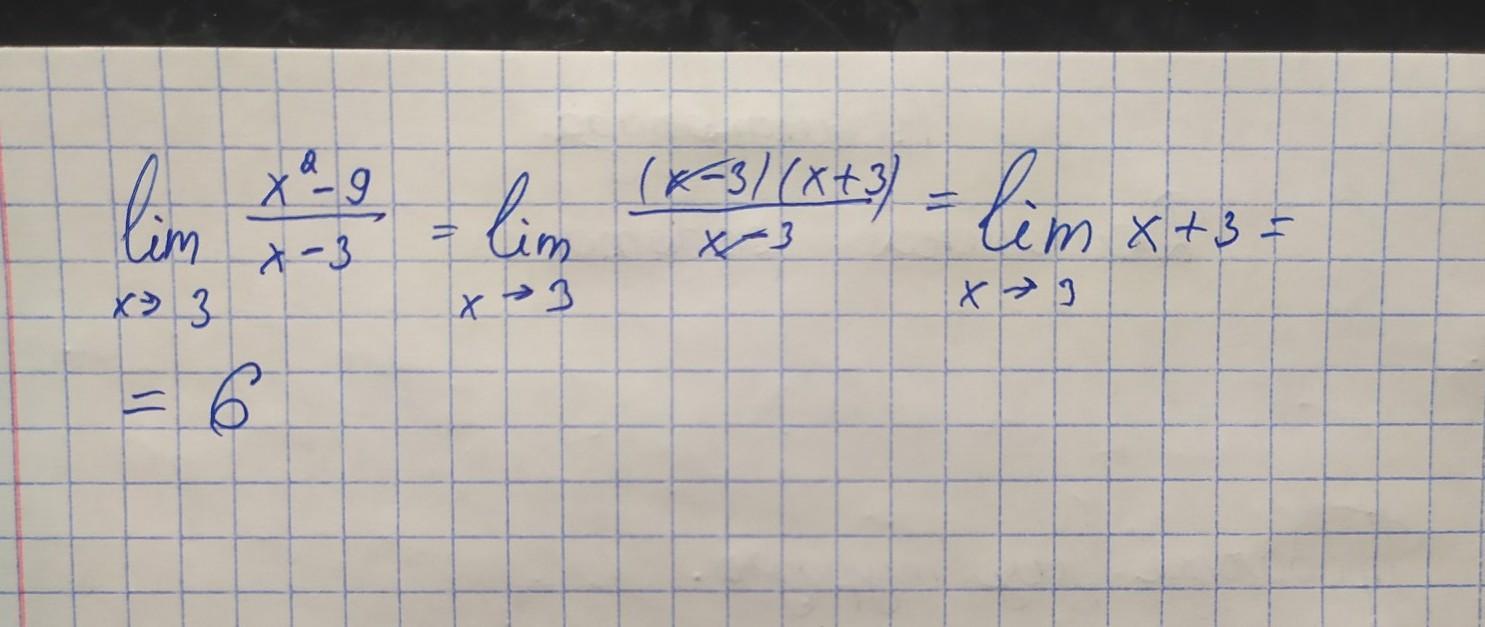 lim x→3 (x²-9)/(x-3) = lim x→3 ((x-3)(x+3))/(x-3) = lim x→3 x+3 =
= 6